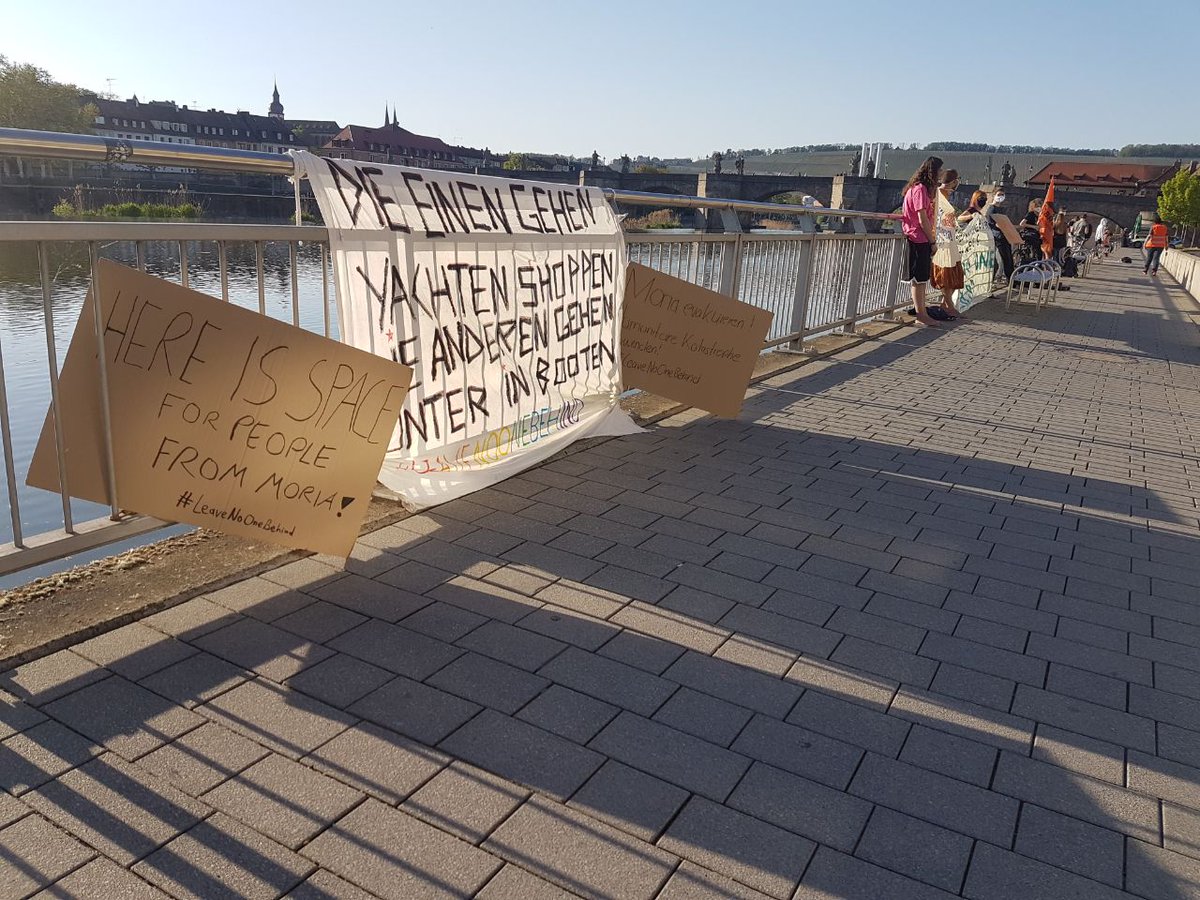 HERE IS SPACE
FOR PEOPLE
FROM MORIA!
#LeaveNoOneBehind
DIE EINEN GEHEN
YACHTEN SHOPPEN
ANDEREN GEHEN
UNTER IN BOOTEN
NOONEBEHIND
Moria evakuieren!
Katastrophe
#LeaveNoOneBehind